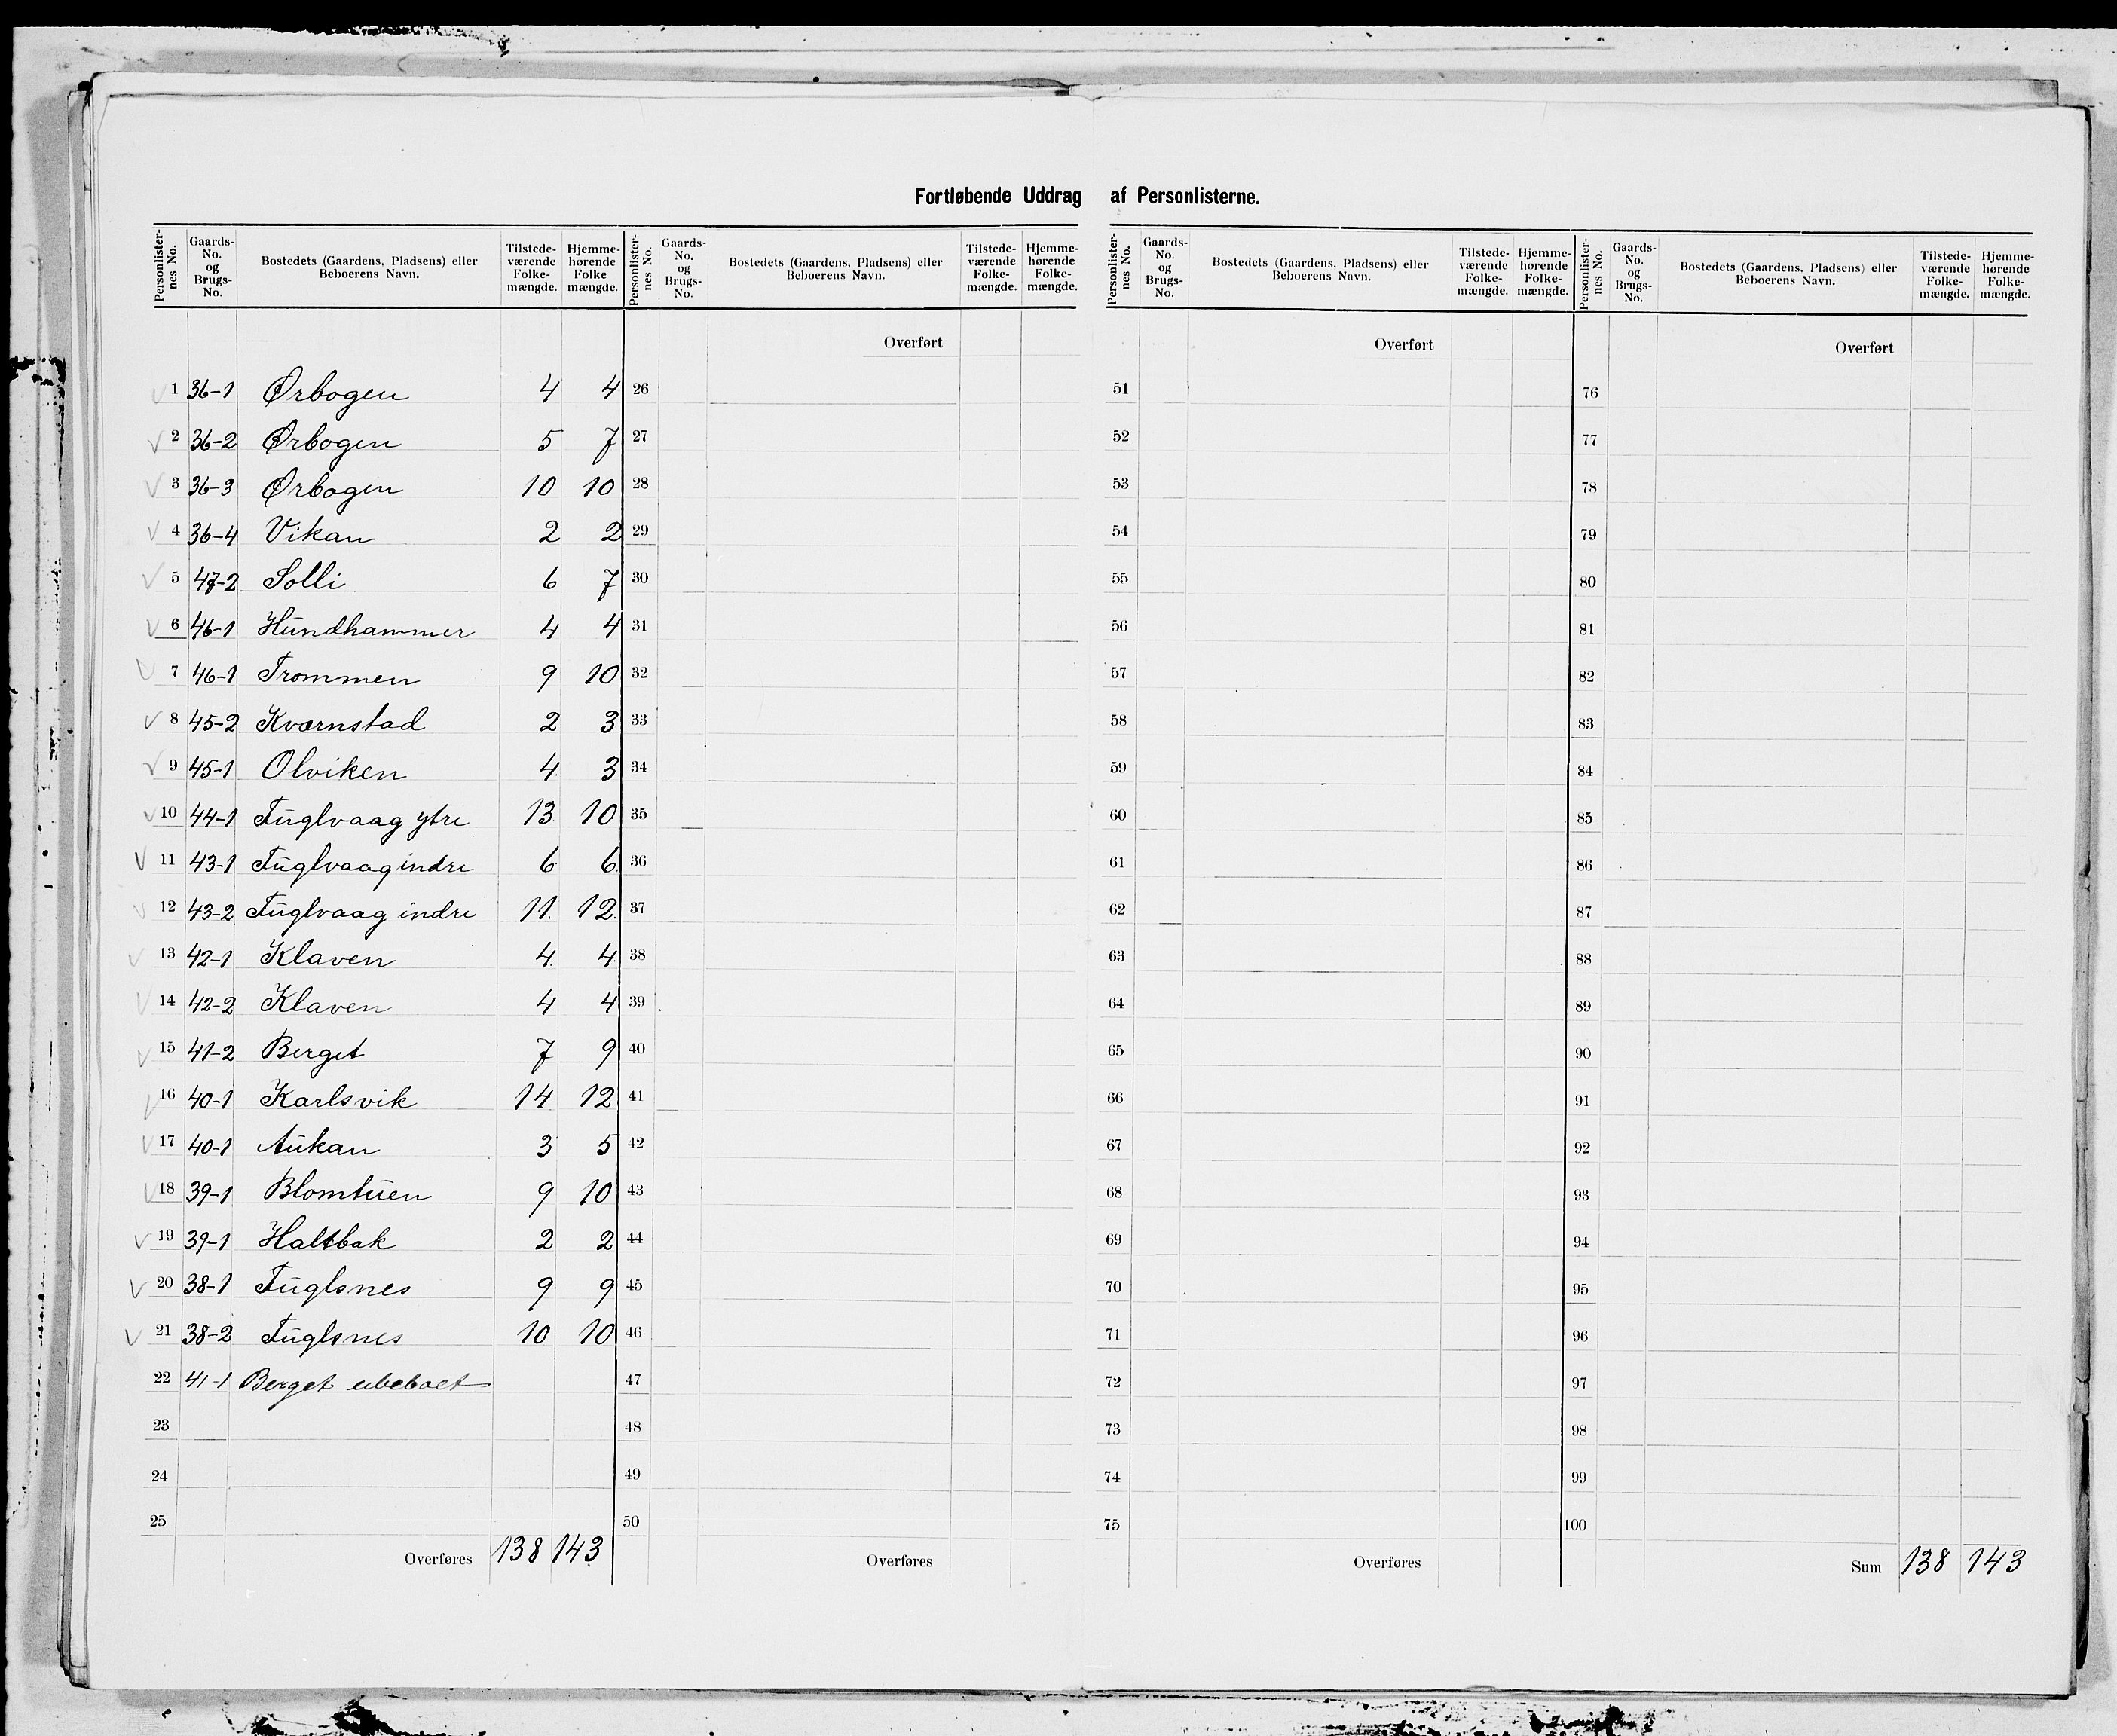 Fortløbende Uddrag af Personlisterne.
Personlister-nes No. Gaards-No. og Brugs-No. Bostedets (Gaardens, Pladsens) eller Beboerens Navn. Tilstede-værende Folke-mængde. Hjemme-hørende Folke mængde.
1 36-1 Ørbogen 4 4
2 36-2 Ørbogen 5 7
3 36-3 Ørbogen 10 10
4 36-4 Vikan 2 2
5 47-2 Solli 6 7
6 46-1 Hundhammer 4 4
7 46-1 Trommen 9 10
8 45-2 Kvernstad 2 3
9 45-1 Olviken 4 3
10 44-1 Fuglvaag ytre 13 10
11 43-1 Fuglvaag indre 6 6
12 43-2 Fuglvaag indre 11 12
13 42-1 Klaven 4 4
14 42-2 Klaven 4 4
15 41-2 Berget 7 9
16 40-1 Karlsvik 14 12
17 40-1 Aukan 3 5
18 39-1 Blomtuen 9 10
19 39-1 Haltbak 2 2
20 38-1 Fuglsnes 9 9
21 38-2 Fuglsnes 10 10
22 41-1 Berget ubeboet
23
24
25
Overføres 138 143
Personlister-nes No. Gaards-No. og Brugs-No. Bostedets (Gaardens, Pladsens) eller Beboerens Navn. Tilstede-værende Folke-mængde. Hjemme-hørende Folke-mængde.
Overført
26
27
28
29
30
31
32
33
34
35
36
37
38
39
40
41
42
43
44
45
46
47
48
49
50
Overføres
Personlister-nes No. Gaards-No. og Brugs-No. Bostedets (Gaardens, Pladsens) eller Beboerens Navn. Tilstede-værende Folke-mængde. Hjemme-hørende Folke-mængde.
Overført
51
52
53
54
55
56
57
58
59
60
61
62
63
64
65
66
67
68
69
70
71
72
73
74
75
Overføres
Personlister-nes No. Gaards-No. og Brugs-No. Bostedets (Gaardens, Pladsens) eller Beboerens Navn. Tilstede-værende Folke-mængde. Hjemme-hørende Folke-mængde.
Overført
76
77
78
79
80
81
82
83
84
85
86
87
88
89
90
91
92
93
94
95
96
97
98
99
100
Sum 138 143